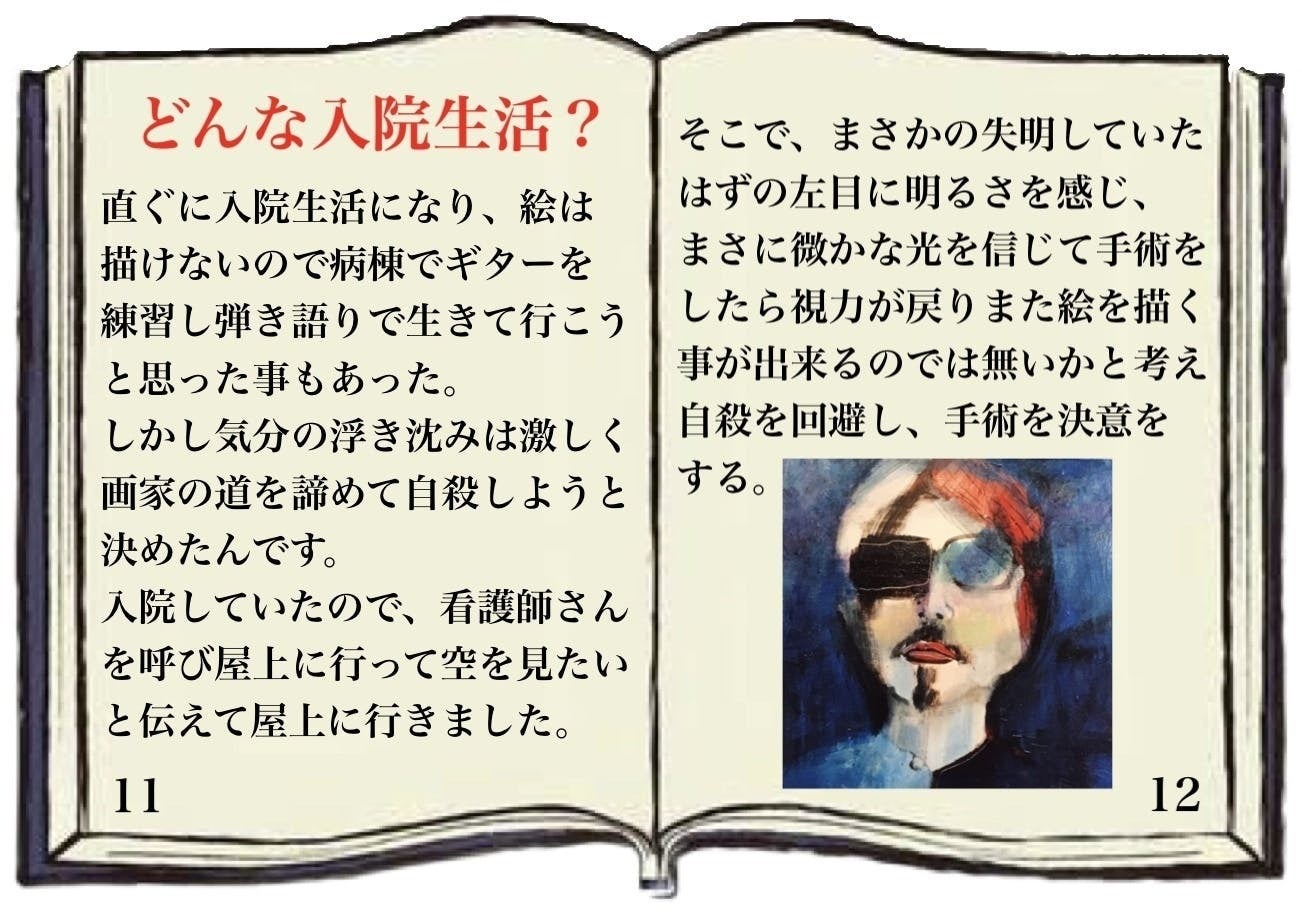 どんな入院生活？
直ぐに入院生活になり、絵は
描けないので病棟でギターを
練習し弾き語りで生きて行こう
と思った事もあった。
しかし気分の浮き沈みは激しく
画家の道を諦めて自殺しようと
決めたんです。
入院していたので、看護師さん
を呼び屋上に行って空を見たい
と伝えて屋上に行きました。
11
そこで、まさかの失明していた
はずの左目に明るさを感じ、
まさに微かな光を信じて手術を
したら視力が戻りまた絵を描く
事が出来るのでは無いかと考え
自殺を回避し、手術を決意を
する。
12